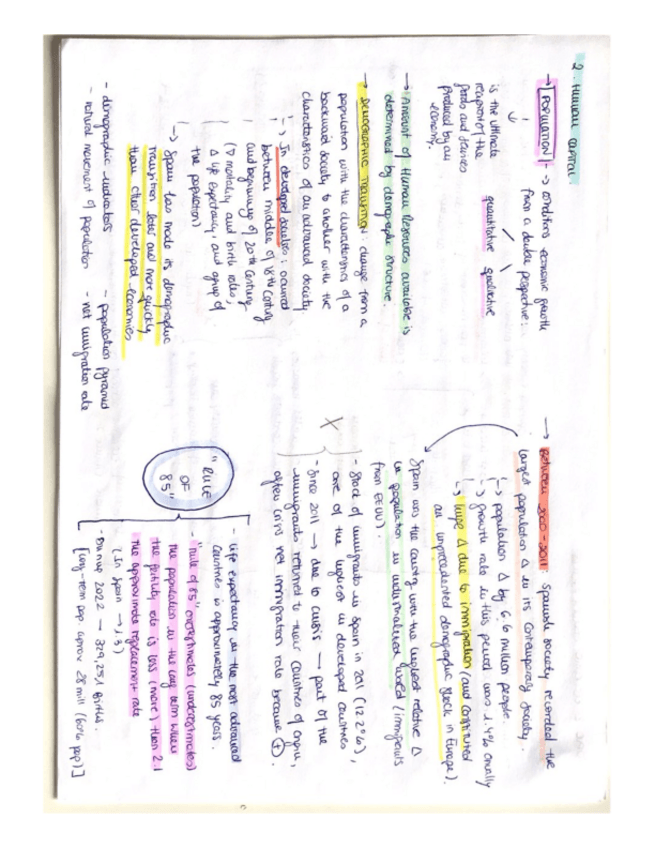 2. HUMAN CAPITAL.
→ POPULATION → conditions economic growth
from a double perspective:
quantitative qualitative
is the ultimate
recipient of the
goods and services
produced by an
economy.
→ Amount of Human Resources available is
determined by demographic structure.
→ DEMOGRAPHIC TRANSITION: change from a
population with the characteristics of a
backward society to another with the
characteristics of an advanced society.
↳ In developed societies: ocurred
between middle of 18th century
and beginning of 20th century
(∇ mortality and birth rates,
Δ life expectancy, and aging of
the population)
→ Spain has made its demographic
transition later and more quickly
than other developed economies
- demographic indicators - population pyramid
- natural movement of population - net immigration rate
→ Between 2000-2011: Spanish society recorded the
largest population Δ in its contemporary society.
↳ population Δ by 6.6 million people.
↳ growth rate in this period was 1.4% anually
↳ huge Δ due to immigration (and constituted
an unprecedented demographic shock in Europe).
Spain was the country with the highest relative Δ
in population in industrialised world (immigrants
from EEUU).
- Stock of immigrants in Spain in 2011 (12.2%),
one of the highest in developed countries
- Since 2011 → due to crisis — part of the
immigrants returned to their countries of origin,
after crisis net immigration rate became (+).
"RULE
OF
85"
- Life expectancy in the most advanced
countries is approximately 85 years.
- "rule of 85" overestimates (underestimates)
the population in the long term when
the fertility rate is less (more) than 2.1
The approximate replacement rate
(In Spain → 1.3)
- During 2022 → 329,251 births.
[long-term pop. aprox 28 mill (60% pop)]